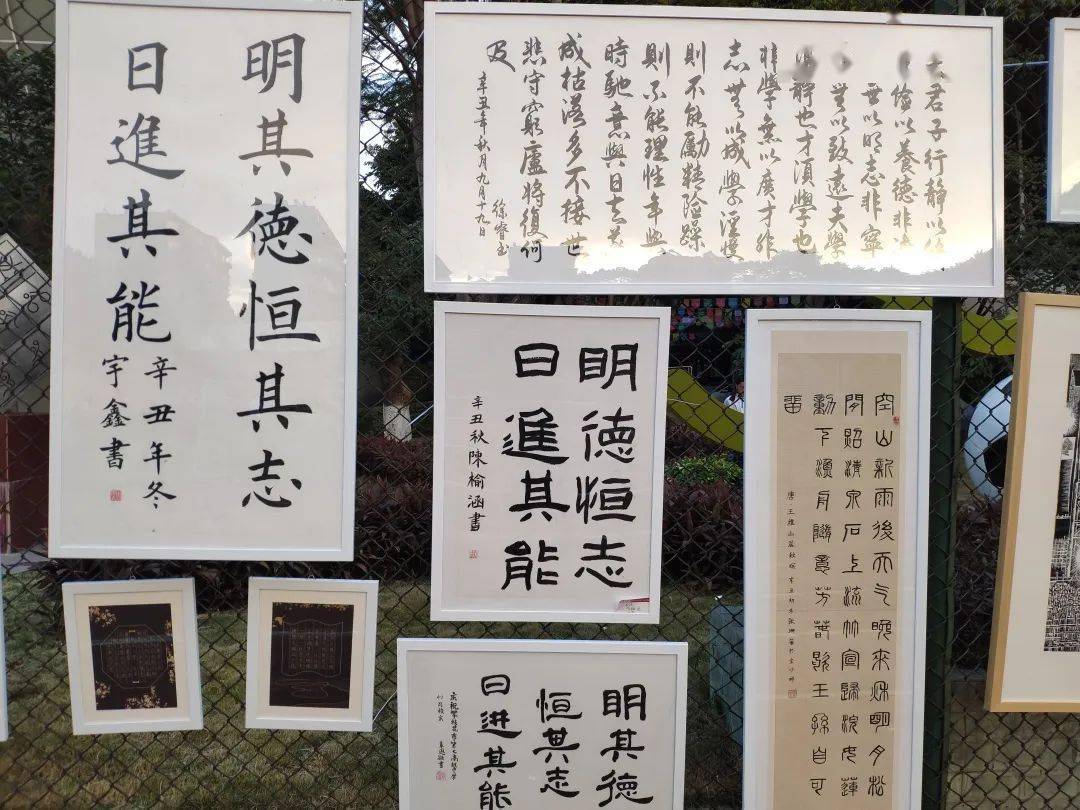 明其德恒其志
日進其能
辛丑年冬
宇鑫書
君子行静以修
儉以養德非
無以明志非寧
無以致遠夫學
静也才須學也
非學無以廣才非
志無以成學淫慢
則不能勵精險躁
則不能理性年與
時馳意與日去遂
成枯落多不接世
悲守窮廬將復何
及
辛丑年秋月九月十九日
徐睿玉
明德恒志
日進其能
辛丑秋陳榆涵書
空山新雨後天气晚來秋明月松
間照清泉石上流竹喧歸浣女蓮
動下漁舟隨意芳春歇王孫自可
留
唐王維山居秋暝
明其德
恒其志
日进其能